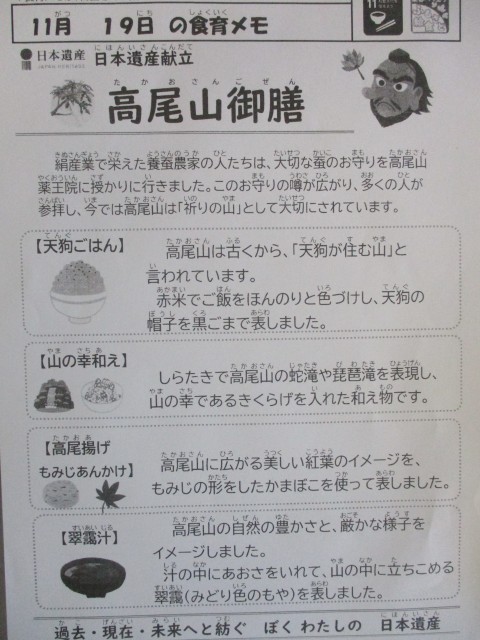 11月 19日 の食育メモ
日本遺産
JAPAN HERITAGE
日本遺産献立
高尾山御膳
絹産業で栄えた養蚕農家の人たちは、大切な蚕のお守りを高尾山
薬王院に授かりに行きました。このお守りの噂が広がり、多くの人が
参拝し、今では高尾山は「祈りの山」として大切にされています。
【天狗ごはん】
高尾山は古くから、「天狗が住む山」と
言われています。
赤米でご飯をほんのりと色づけし、天狗の
帽子を黒ごまで表しました。
【山の幸和え】
しらたきで高尾山の蛇滝や琵琶滝を表現し、
山の幸であるきくらげを入れた和え物です。
【高尾揚げ
もみじあんかけ】
高尾山に広がる美しい紅葉のイメージを、
もみじの形をしたかまぼこを使って表しました。
【翠靄汁】
高尾山の自然の豊かさと、厳かな様子を
イメージしました。
汁の中にあおさをいれて、山の中に立ちこめる
翠靄(みどり色のもや)を表しました。
過去・現在・未来へと紡ぐ ぼく わたしの 日本遺産